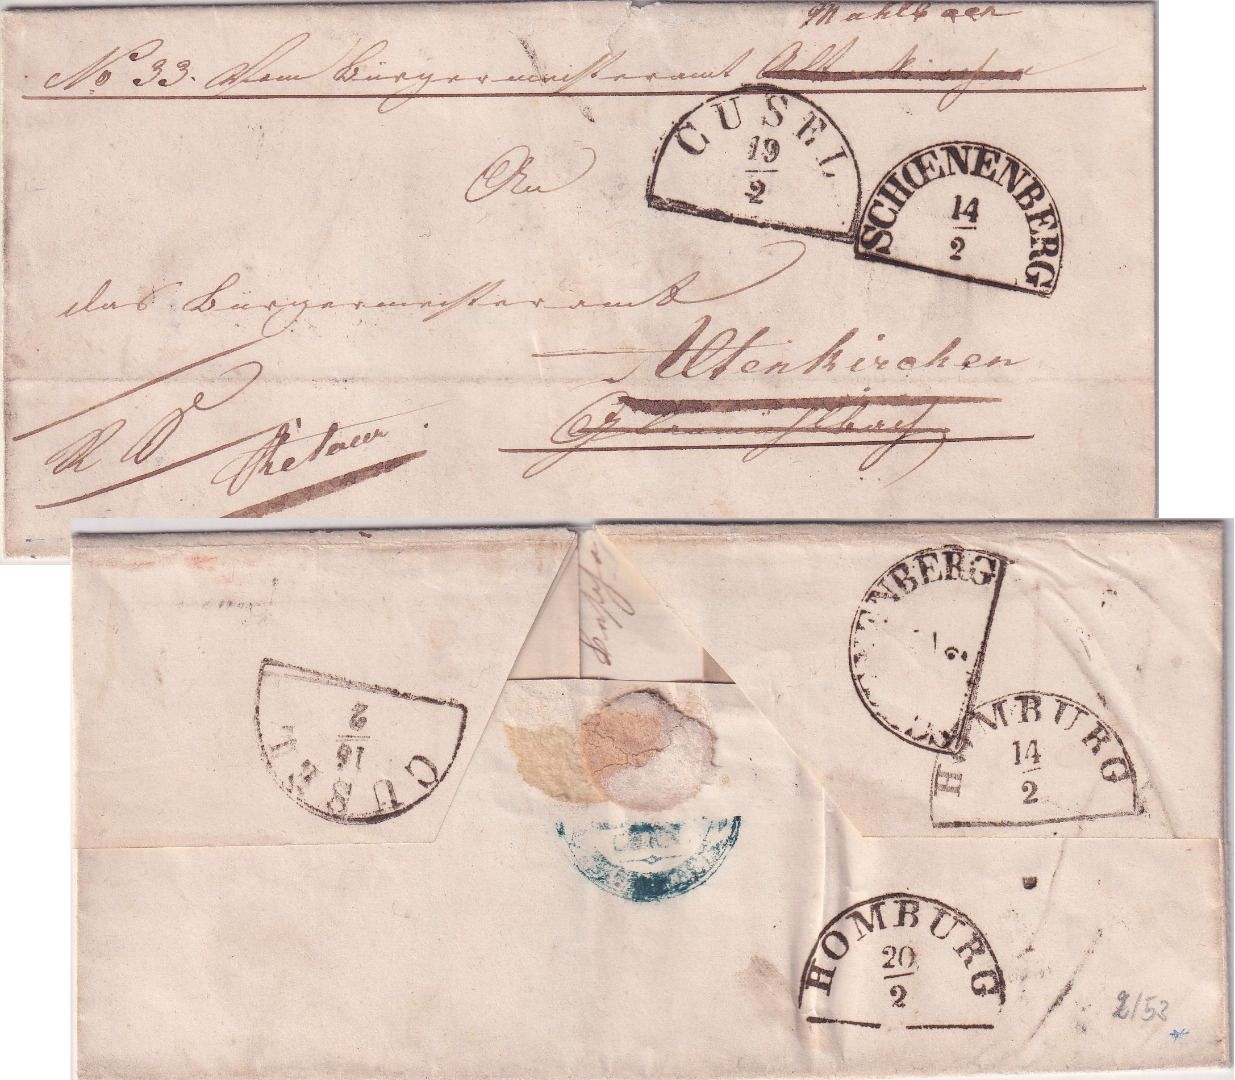 Mahlbach
No 33. Vom Bürgermeisteramt Altenkirchen
CUSEL
19
2
SCHŒNENBERG
14
2
An
das Bürgermeisteramt
Altenkirchen
R. S.
Retour
CUSEL
16
2
ENBERG
HOMBURG
14
2
HOMBURG
20
2
2/53